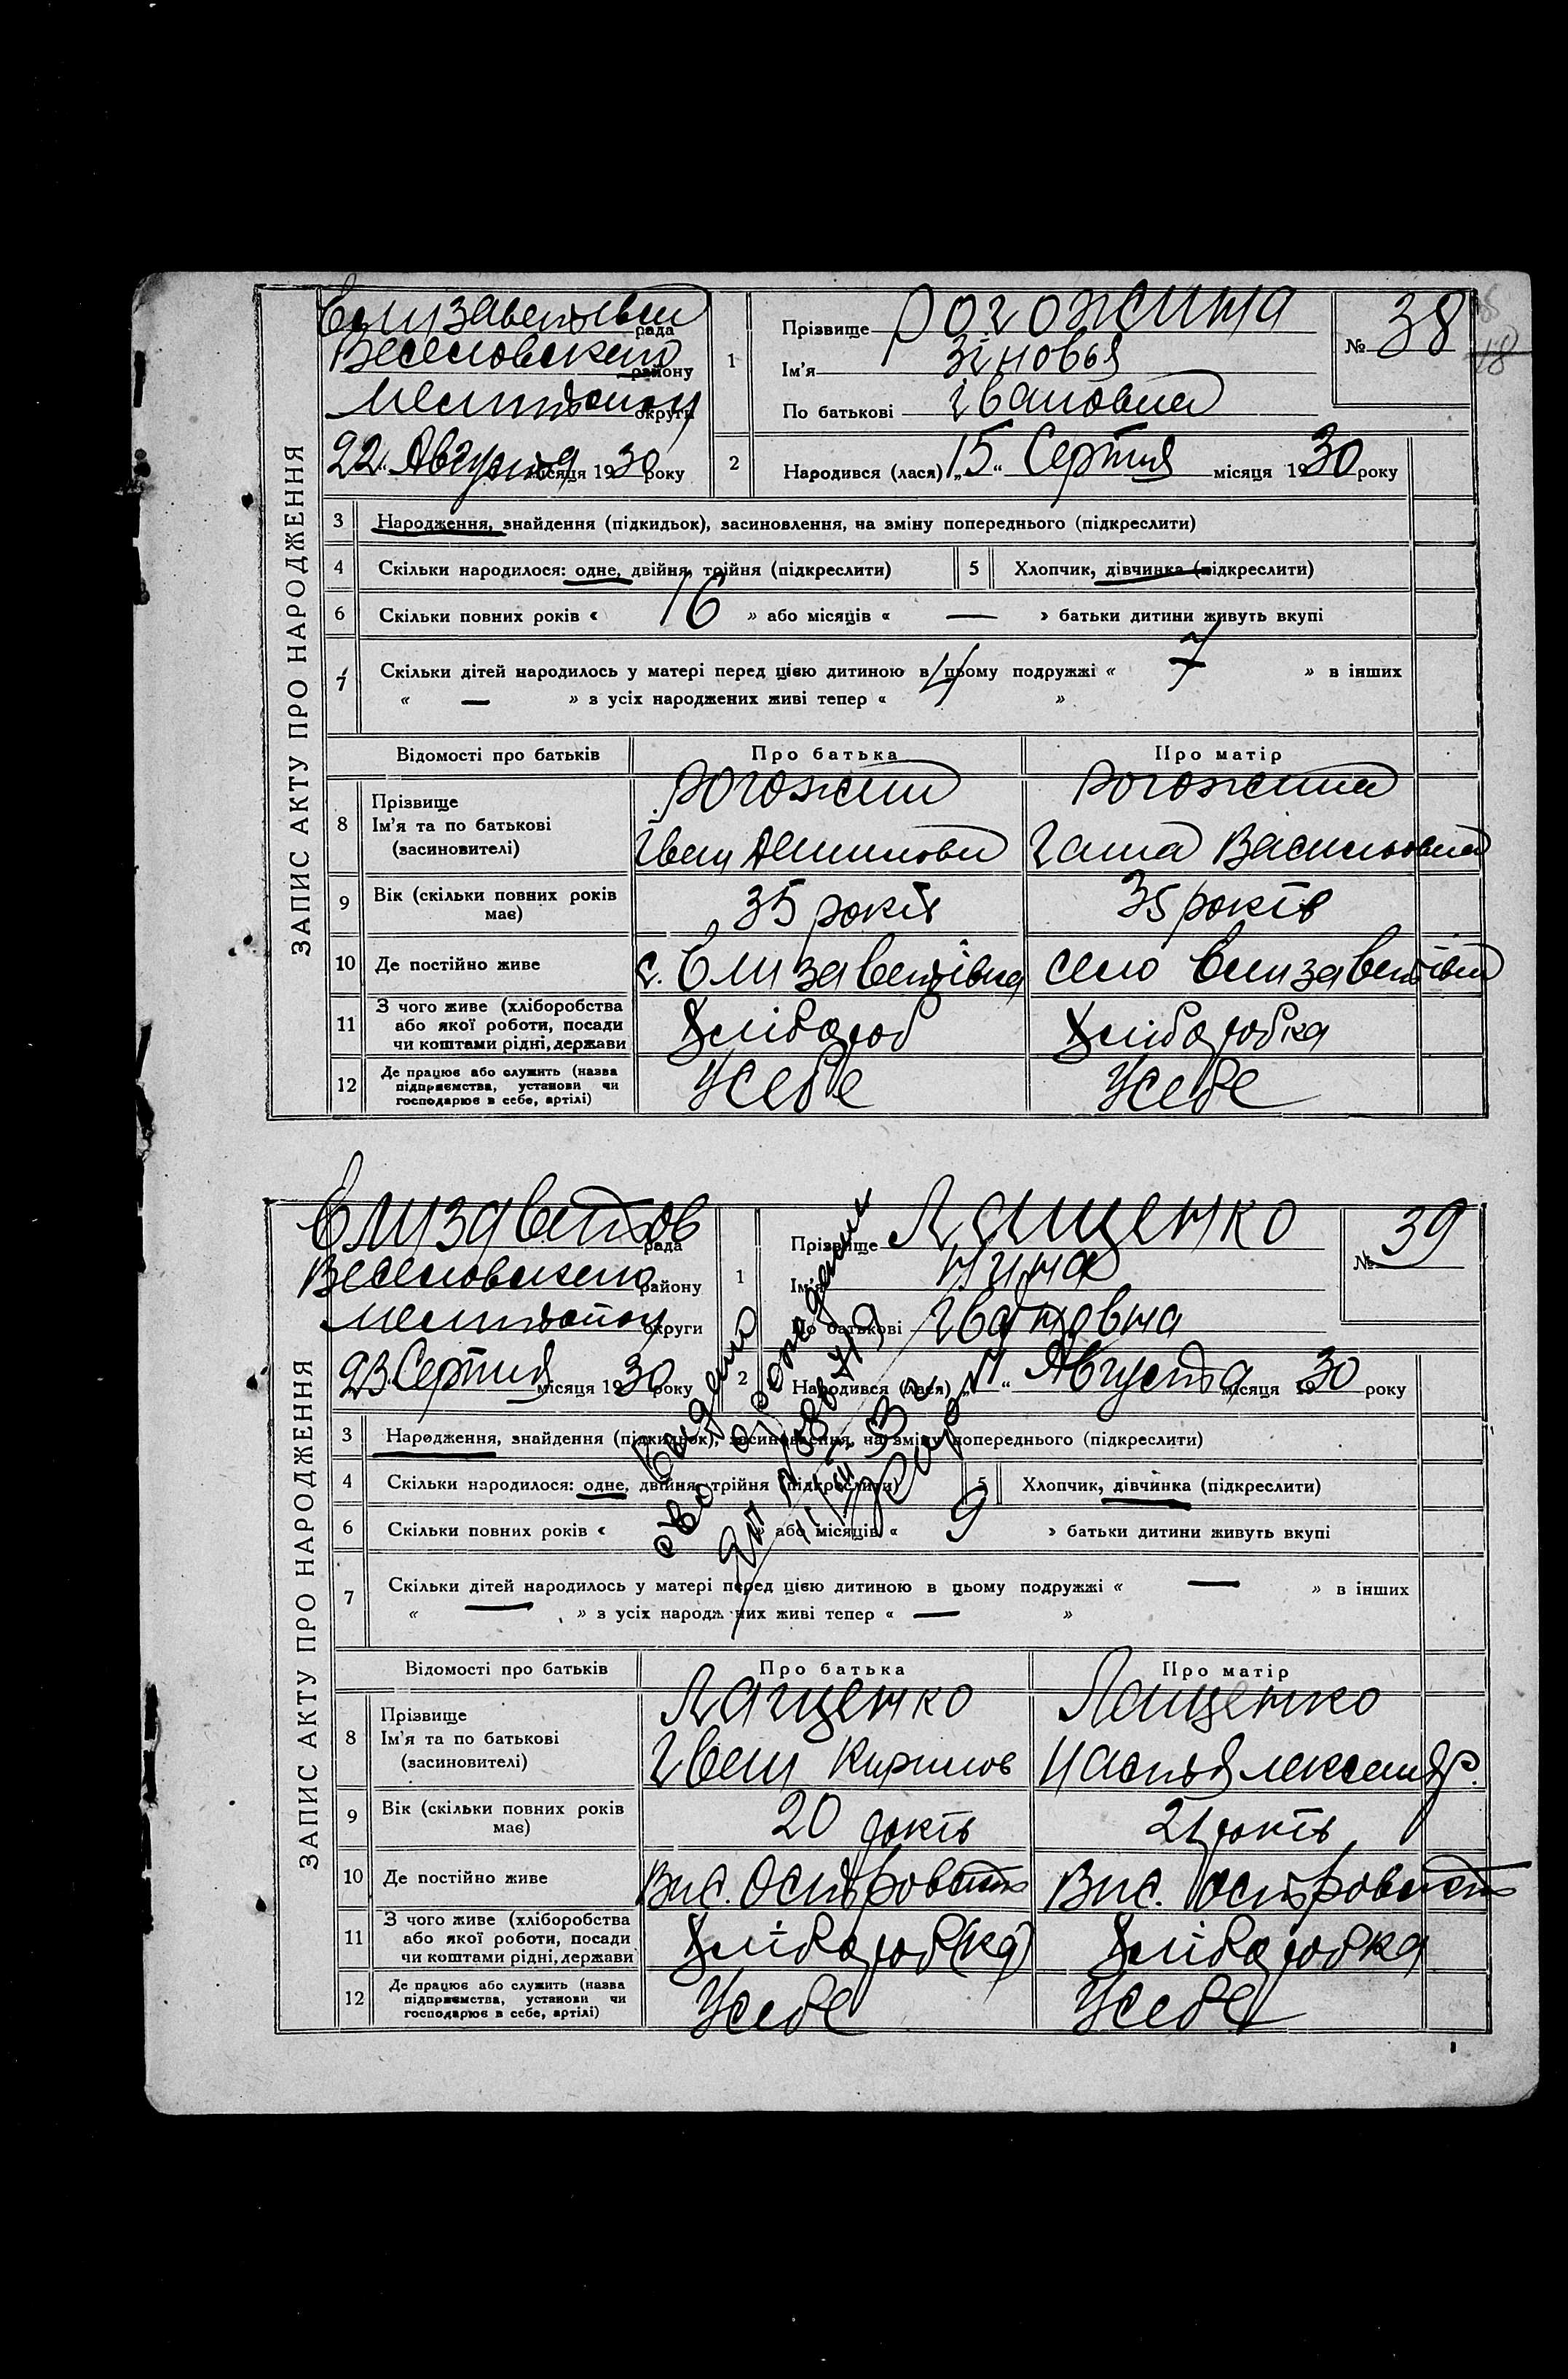 ЗАПИС АКТУ ПРО НАРОДЖЕННЯ
Елизаветівка рада
Веселовського району
Мелітопол округи
22 „ Августа місяця 1930 року
1
Прізвище Рогожина
Ім'я Зіновья
По батькові Івановна
№ 38
18
2
Народився (лася) „15“ Серпня місяця 1930 року
3 Народження, знайдення (підкидьок), засиновлення, на зміну попереднього (підкреслити)
4 Скільки народилося: одне, двійня, трійня (підкреслити) 5 Хлопчик, дівчинка (підкреслити)
6 Скільки повних років « 16 » або місяців « — » батьки дитини живуть вкупі
7 Скільки дітей народилось у матері перед цією дитиною в цьому подружжі « 7 » в інших
« — » з усіх народжених живі тепер « 4 »
Відомості про батьків Про батька Про матір
8 Прізвище Ім'я та по батькові (засиновителі)
Рогожин Рогожина
Іван Ганна Васильовна
9 Вік (скільки повних років має) 35 років 35 років
10 Де постійно живе с. Елизаветівка село Елизаветівка
11 З чого живе (хліборобства або якої роботи, посади чи коштами рідні, держави Хлібороб Хліборобка
12 Де працює або служить (назва підприємства, установи чи господарює в себе, артілі) У себе У себе
ЗАПИС АКТУ ПРО НАРОДЖЕННЯ
Елизаветов рада
Веселовського району
Мелітопол округи
23 Серпня місяця 1930 року
1
Прізвище Лященко
Ім'я Нина
По батькові Івановна
№ 39
2
Народився (лася) „ “ Августа місяця 1930 року
Видано
сво о рождении
3 Народження, знайдення (підкидьок), засиновлення, на зміну попереднього (підкреслити)
4 Скільки народилося: одне, двійня, трійня (підкреслити) 5 Хлопчик, дівчинка (підкреслити)
6 Скільки повних років « » або місяців « 9 » батьки дитини живуть вкупі
7 Скільки дітей народилось у матері перед цією дитиною в цьому подружжі « — » в інших
« — » з усіх народжених живі тепер « — »
Відомості про батьків Про батька Про матір
8 Прізвище Ім'я та по батькові (засиновителі)
Лященко Лященко
Іван Кирилов Александр.
9 Вік (скільки повних років має) 20 років 21 років
10 Де постійно живе Вис. Вис.
11 З чого живе (хліборобства або якої роботи, посади чи коштами рідні, держави Хлібороб(ка) Хліборобка
12 Де працює або служить (назва підприємства, установи чи господарює в себе, артілі) У себе У себе